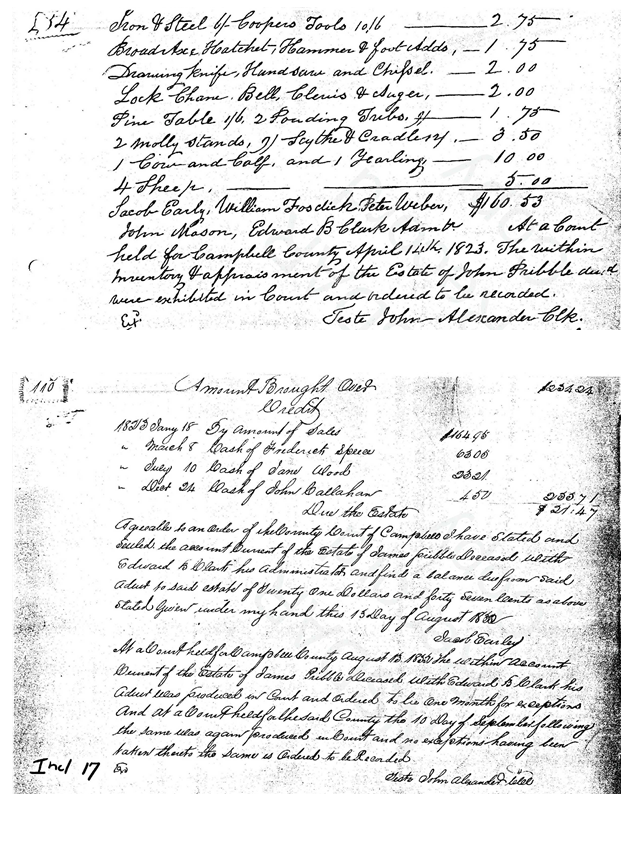 £54
Iron & Steel 6/ Coopers Tools 10/6 2.75
Broad Axe, Hatchet, Hammer & foot Adds, 1.75
Drawing knife, Handsaw and Chissel. 2.00
Lock Chane. Bell, Clevis & Auger, 2.00
Pine Table 1/6, 2 Pouding Tubs, 9/ 1.75
2 molly stands, 9/ Scythe & Cradle 3.50
1 Cow and Calf, and 1 Yearling, 10 00
4 Sheep, 5.00
Jacob Early, William Fosdick, Peter Weber, $160.53
John Mason, Edward B Clark Admtr At a Court
held for Campbell County April 14th, 1823. The within
Inventory & appraisment of the Estate of John Pribble decd
were exhibited in Court and ordered to be recorded.
Ex. Teste John Alexander Clk.
110 Amount Brought Over $234.24
Credit
1823 Jany 18 By Amount of Sales $164 95
" March 8 Cash of Frederick Speece 63 05
" July 10 Cash of Jane Wood
" Dect 24 Cash of John Callahan 4 50 233 71
Due the Estate $ 21.47
Agreeable to an Order of the County Court of Campbell I have Stated and
Settled the account Current of the Estate of James pribble Deceased with
Edward B Clark his Administrator and find a balance due from Said
Admr to said estate of Twenty One Dollars and forty Seven Cents as above
Stated Given under my hand this 13 Day of August
Jacob Earley
At a Court held for Campbell County August 13 the within account
Current of the Estate of James Pribble deceased with Edward B Clark his
Admr was produced in Court and Ordered to lie One Month for exceptions
And at a Court held for the said County the 10 Day of September following
the same was again produced in Court and no exceptions having been
taken thereto the same is Ordered to be Recorded
Incl 17 Ex
Teste John Alexander Clk